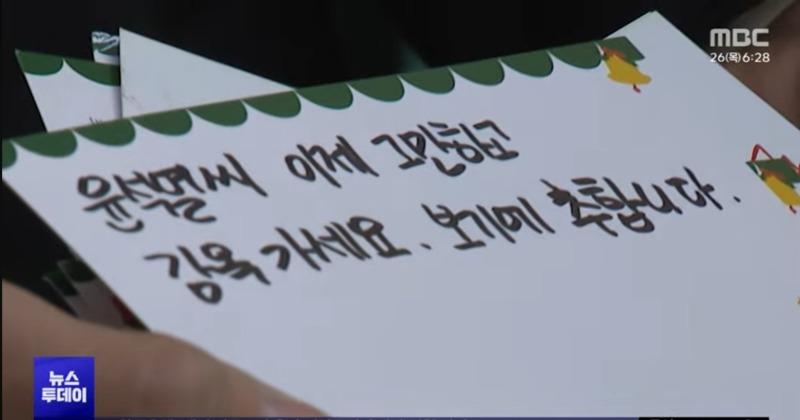 MBC
26(목)6:28
윤석열씨 이제 그만하고
감옥 가세요. 보기에 추합니다.
뉴스
투데이